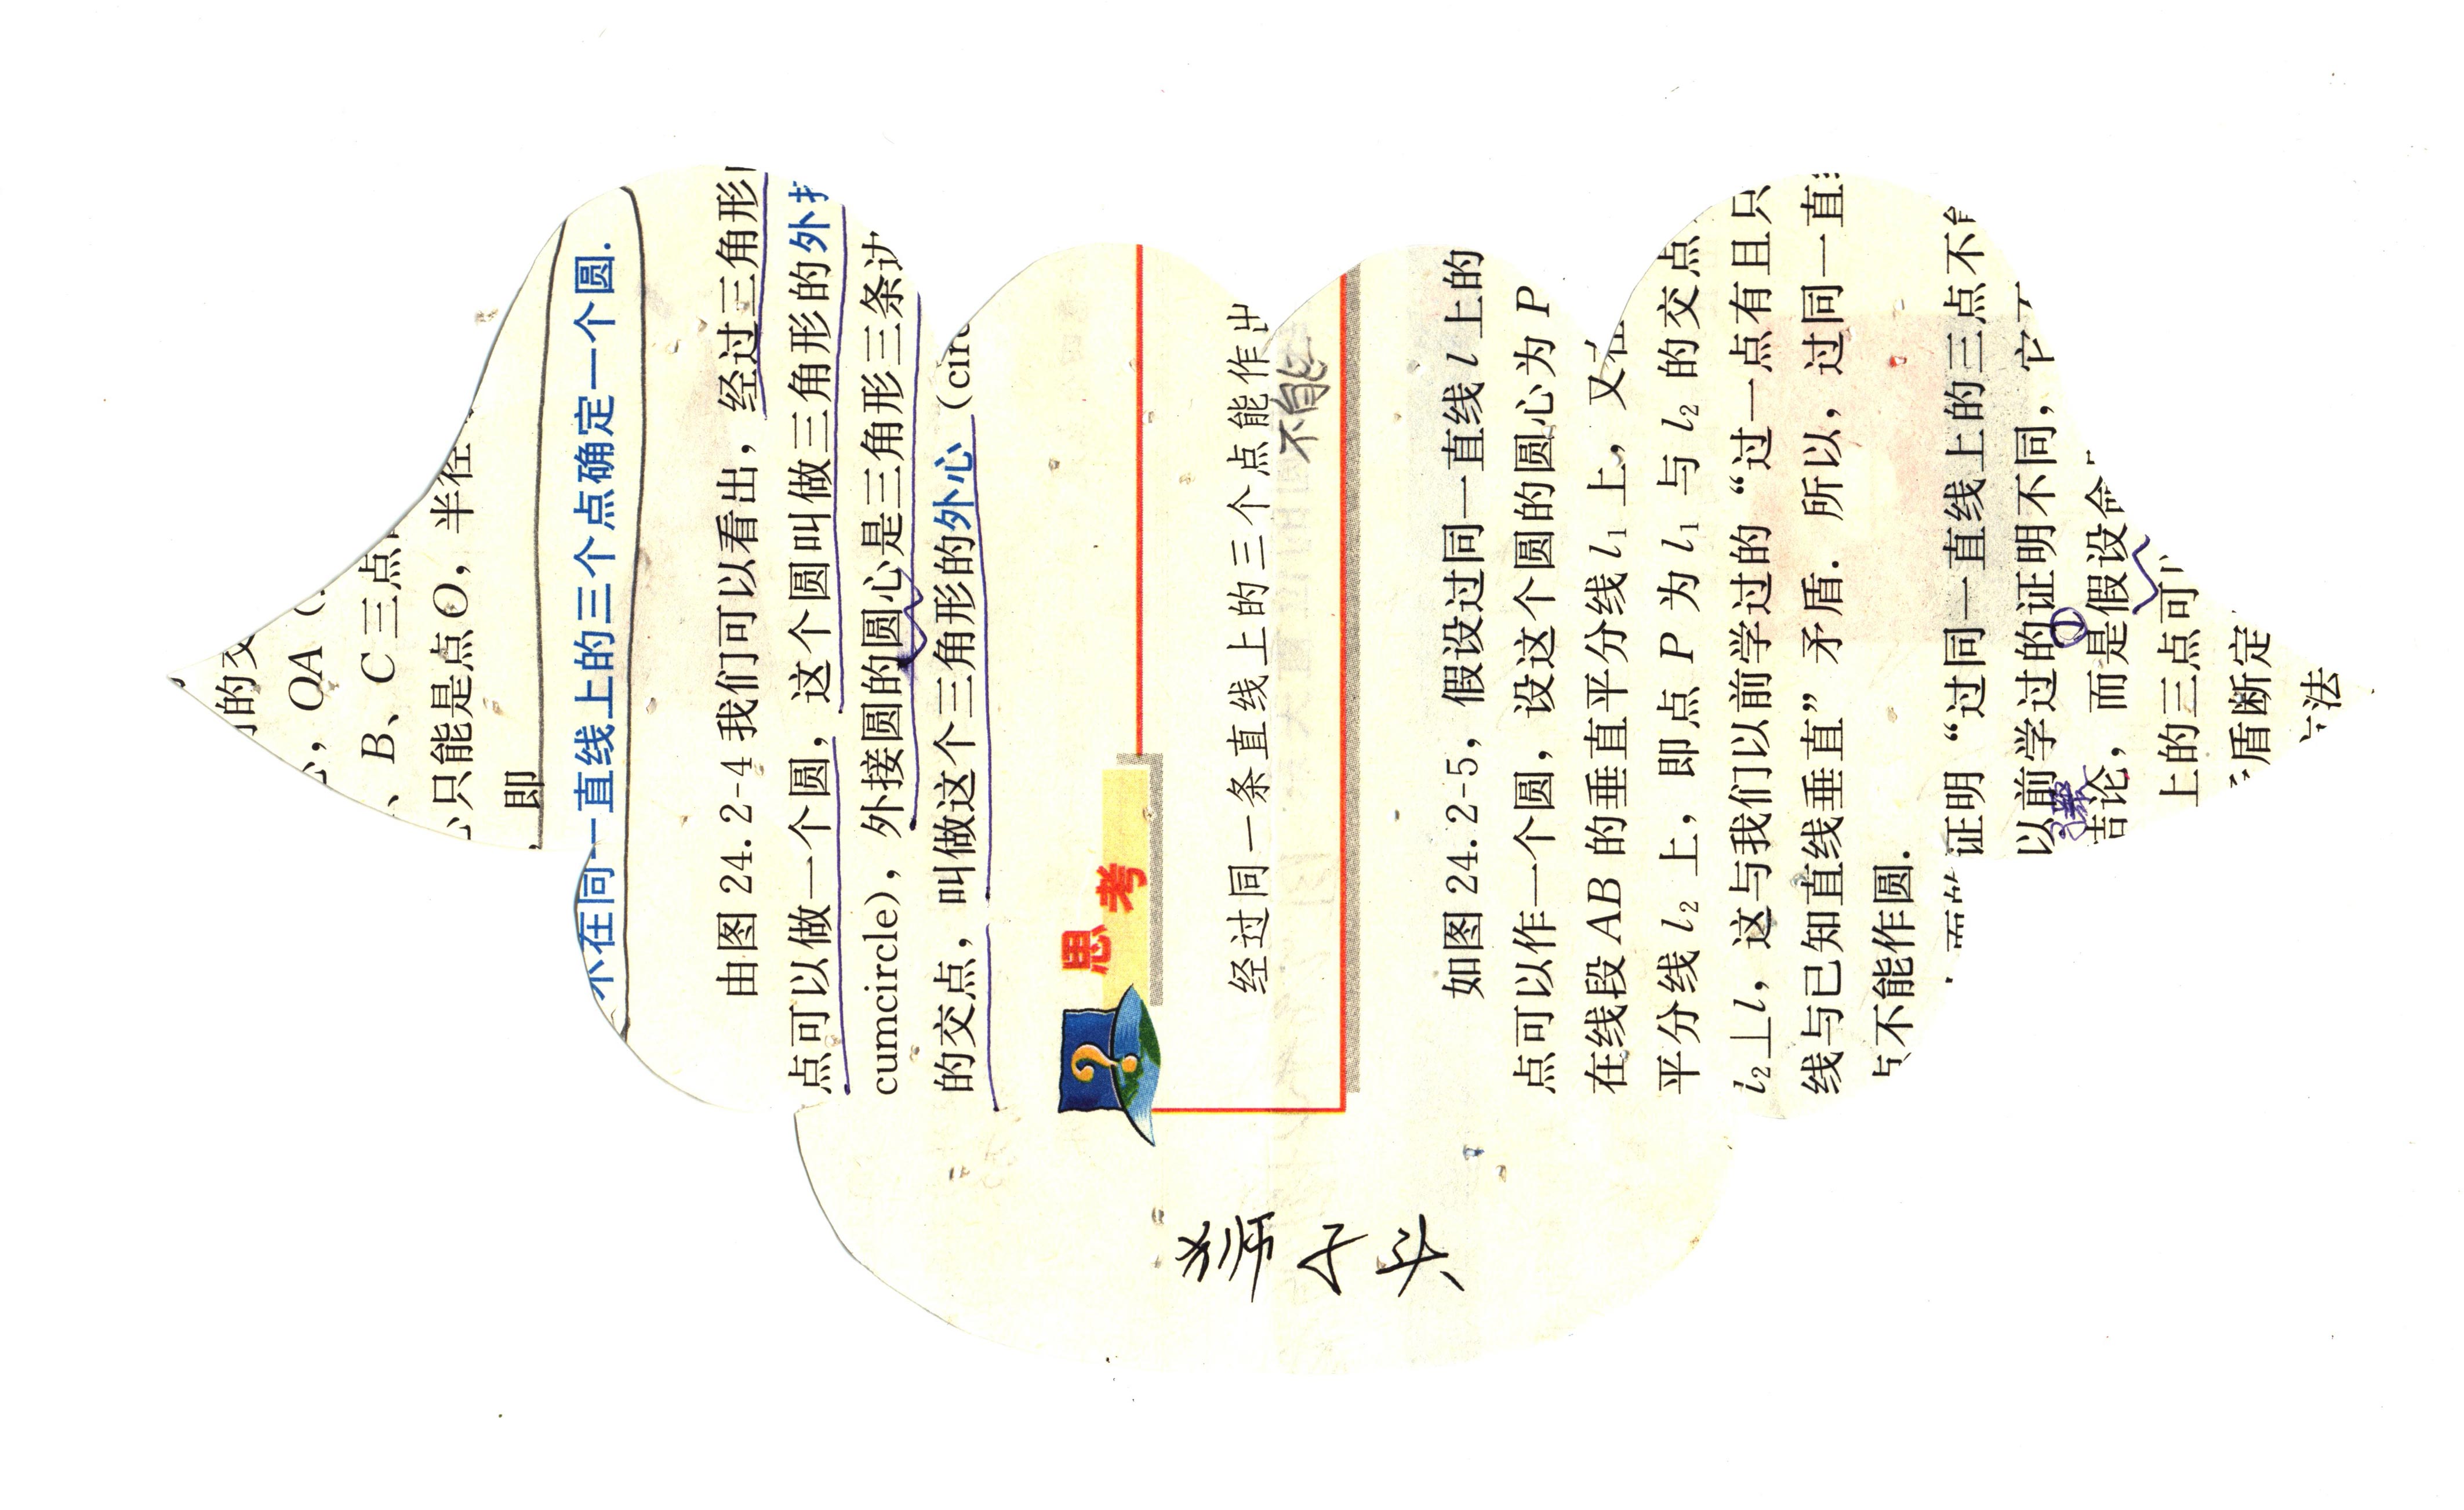 的交
, OA (
、B、C三点
只能是点O, 半径
即
不在同一直线上的三个点确定一个圆.
由图 24.2-4 我们可以看出, 经过三角形
点可以做一个圆, 这个圆叫做三角形的外接
cumcircle), 外接圆的圆心是三角形三条边
的交点, 叫做这个三角形的外心 (circ
思考
经过同一条直线上的三个点能作出
不能
如图 24.2-5, 假设过同一直线 l 上的
点可以作一个圆, 设这个圆的圆心为 P
在线段 AB 的垂直平分线 l₁ 上, 又在
平分线 l₂ 上, 即点 P 为 l₁ 与 l₂ 的交点
l₂⊥l, 这与我们以前学过的 “过一点有且只
线与已知直线垂直” 矛盾. 所以, 过同一直
与不能作圆.
证明 “过同一直线上的三点不能
以前学过的证明不同, 它
结论, 而是假设命
①
上的三点可
矛盾断定
方法
狮子头